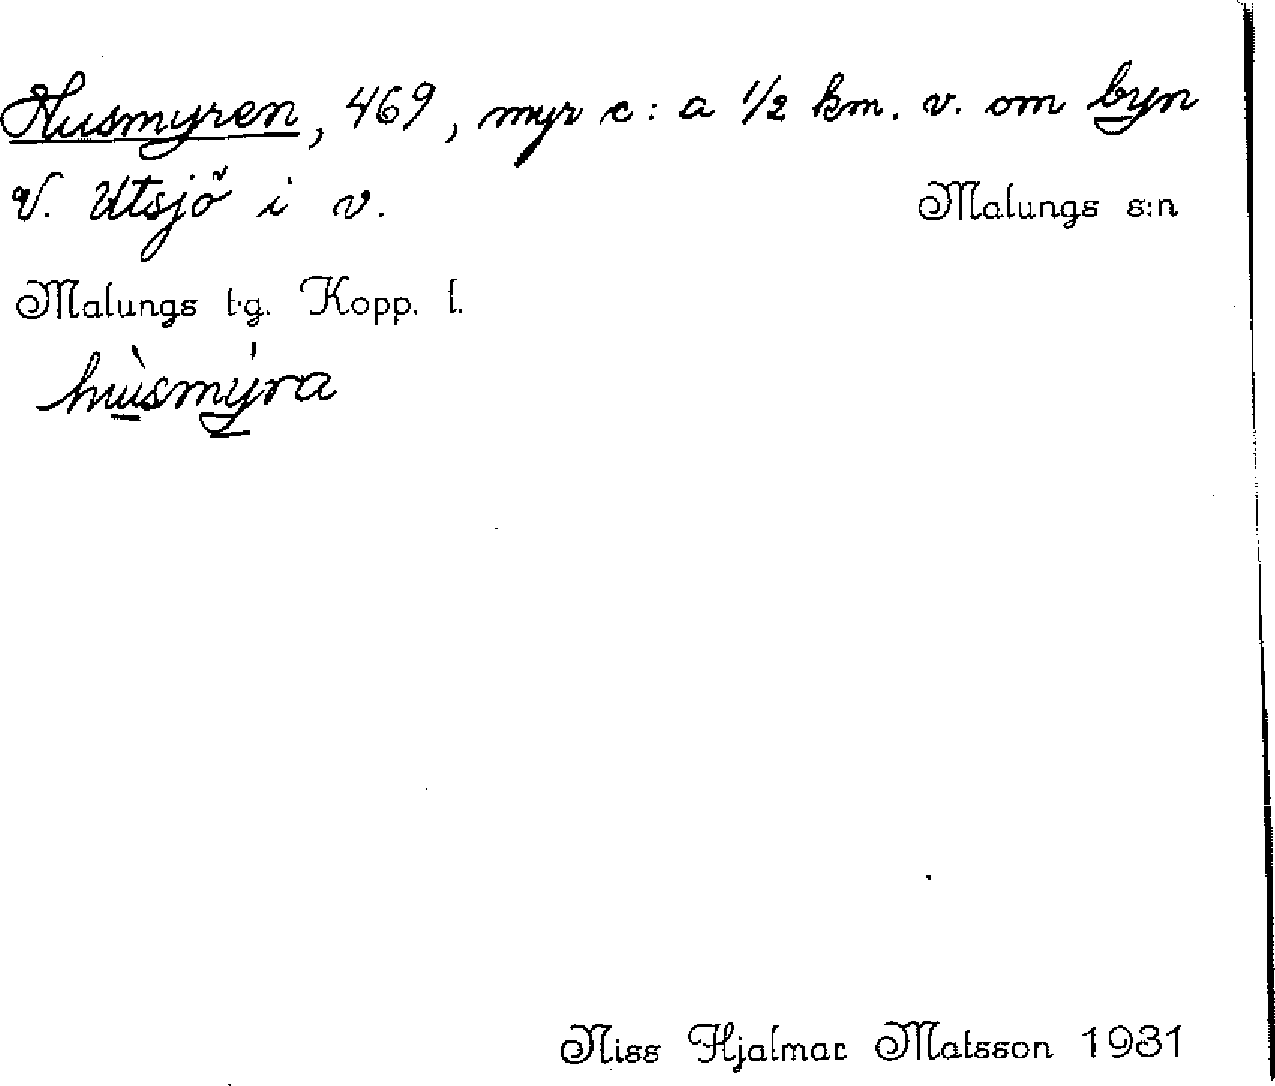 Husmyren, 469, myr c:a 1/2 km. v. om byn
V. Utsjö i v. Malungs s:n
Malungs t.g. Kopp. l.
hùsmýra
Niss Hjalmar Matsson 1931